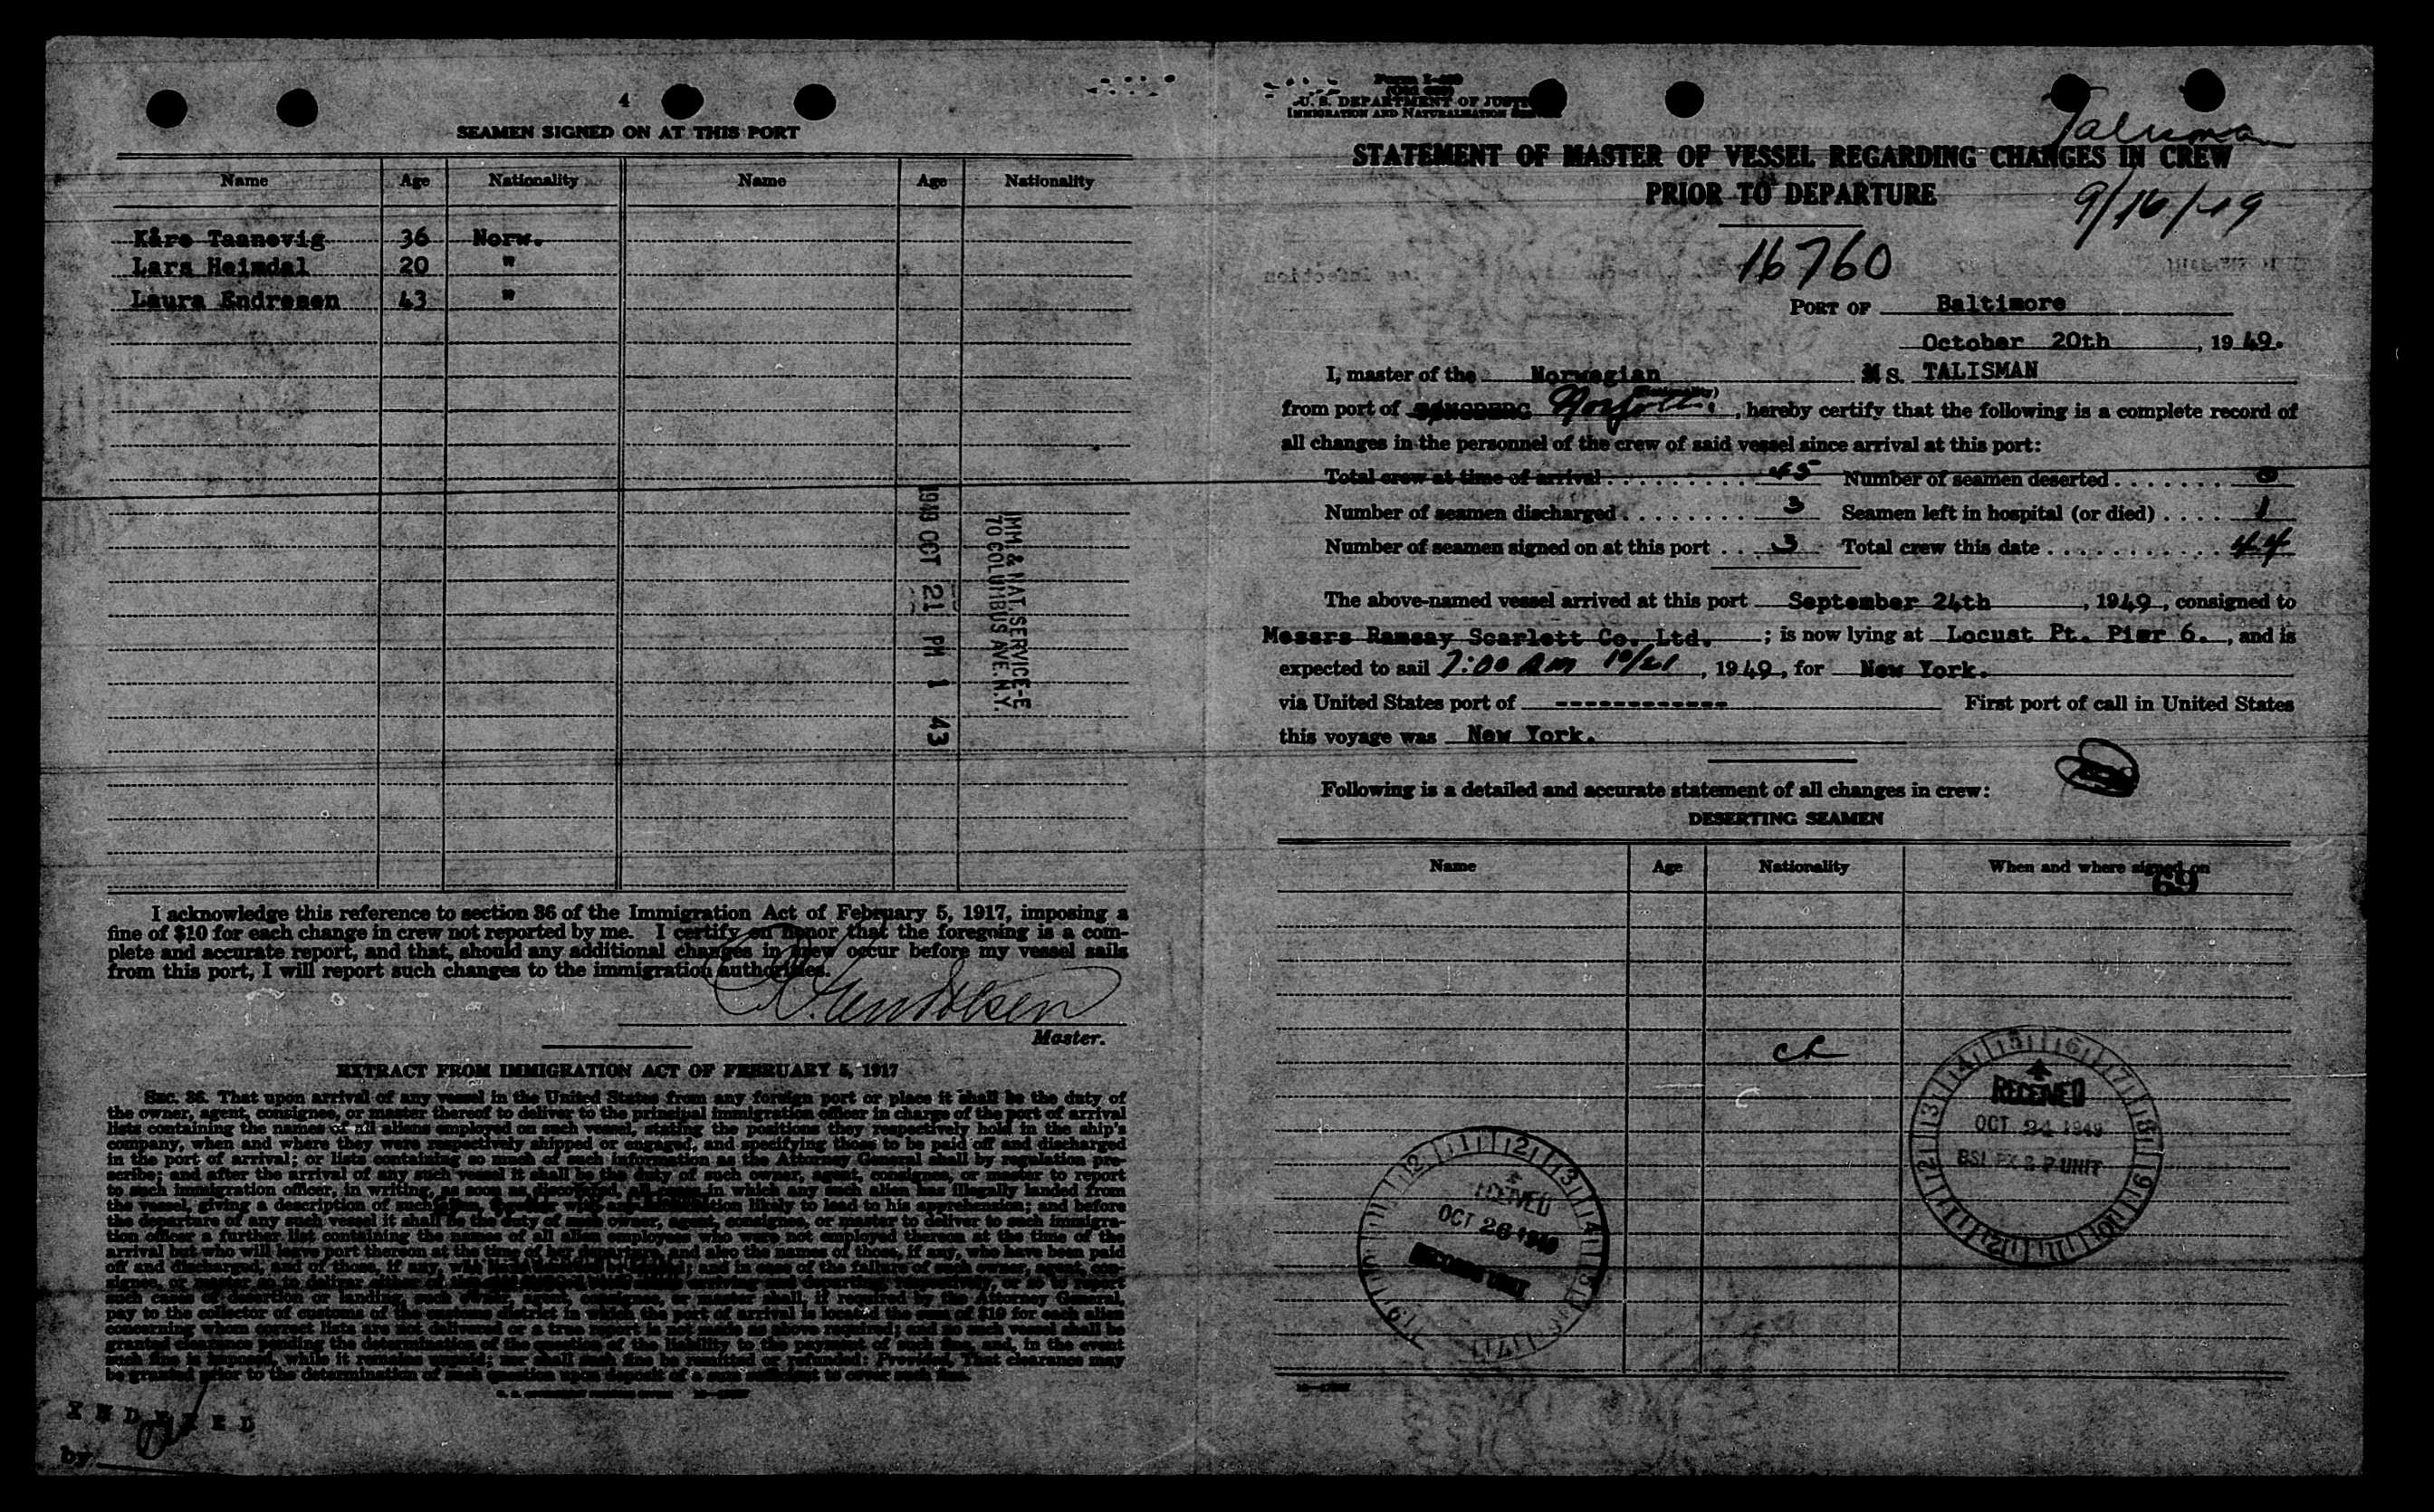 4
SEAMEN SIGNED ON AT THIS PORT
Name Age Nationality Name Age Nationality
Kåre Taanevig 36 Norw.
Lars Heimdal 20 "
Laura Endresen 43 "
1949 OCT 21 PM 1 43
IMM. & NAT. SERVICE-E
70 COLUMBUS AVE. N.Y.
I acknowledge this reference to section 36 of the Immigration Act of February 5, 1917, imposing a
fine of $10 for each change in crew not reported by me. I certify on honor that the foregoing is a com-
plete and accurate report, and that, should any additional changes in crew occur before my vessel sails
from this port, I will report such changes to the immigration authorities.
Master.
EXTRACT FROM IMMIGRATION ACT OF FEBRUARY 5, 1917
SEC. 36. That upon arrival of any vessel in the United States from any foreign port or place it shall be the duty of
the owner, agent, consignee, or master thereof to deliver to the principal immigration officer in charge of the port of arrival
lists containing the names of all aliens employed on such vessel, stating the positions they respectively hold in the ship's
company, when and where they were respectively shipped or engaged, and specifying those to be paid off and discharged
in the port of arrival; or lists containing so much of such information as the Attorney General shall by regulation pre-
scribe; and after the arrival of any such vessel it shall be the duty of such owner, agent, consignee, or master to report
to such immigration officer, in writing, as soon as discovered, all cases in which any such alien has illegally landed from
the vessel, giving a description of such alien, together with any information likely to lead to his apprehension; and before
the departure of any such vessel it shall be the duty of such owner, agent, consignee, or master to deliver to such immigra-
tion officer a further list containing the names of all alien employees who were not employed thereon at the time of the
arrival but who will leave port thereon at the time of her departure, and also the names of those, if any, who have been paid
off and discharged, and of those, if any, who
such cases of desertion or landing, such owner, agent, consignee, or master shall, if required by the Attorney General,
pay to the collector of customs of the customs district in which the port of arrival is located the sum of $10 for each alien
be granted prior to the determination of such question upon deposit of a sum sufficient to cover such fine.
INDEXED
by
U. S. DEPARTMENT OF JUSTICE
IMMIGRATION AND NATURALIZATION SERVICE
Talisman
STATEMENT OF MASTER OF VESSEL REGARDING CHANGES IN CREW
PRIOR TO DEPARTURE
9/16/49
16760
PORT OF Baltimore
October 20th, 1949.
I, master of the Norwegian M S. TALISMAN
from port of TØNSBERG , hereby certify that the following is a complete record of
all changes in the personnel of the crew of said vessel since arrival at this port:
Total crew at time of arrival 45 Number of seamen deserted 0
Number of seamen discharged 3 Seamen left in hospital (or died) 1
Number of seamen signed on at this port 3 Total crew this date 44
The above-named vessel arrived at this port September 24th, 1949, consigned to
Messrs Ramsay Scarlett Co. Ltd. ; is now lying at Locust Pt. Pier 6. , and is
expected to sail 7:00 AM 10/21, 1949, for New York.
via United States port of ------------ First port of call in United States
this voyage was New York.
Following is a detailed and accurate statement of all changes in crew:
DESERTING SEAMEN
Name Age Nationality When and where signed on
69
RECEIVED
OCT 24 1949
RECEIVED
OCT 26 1949
RECORDS UNIT